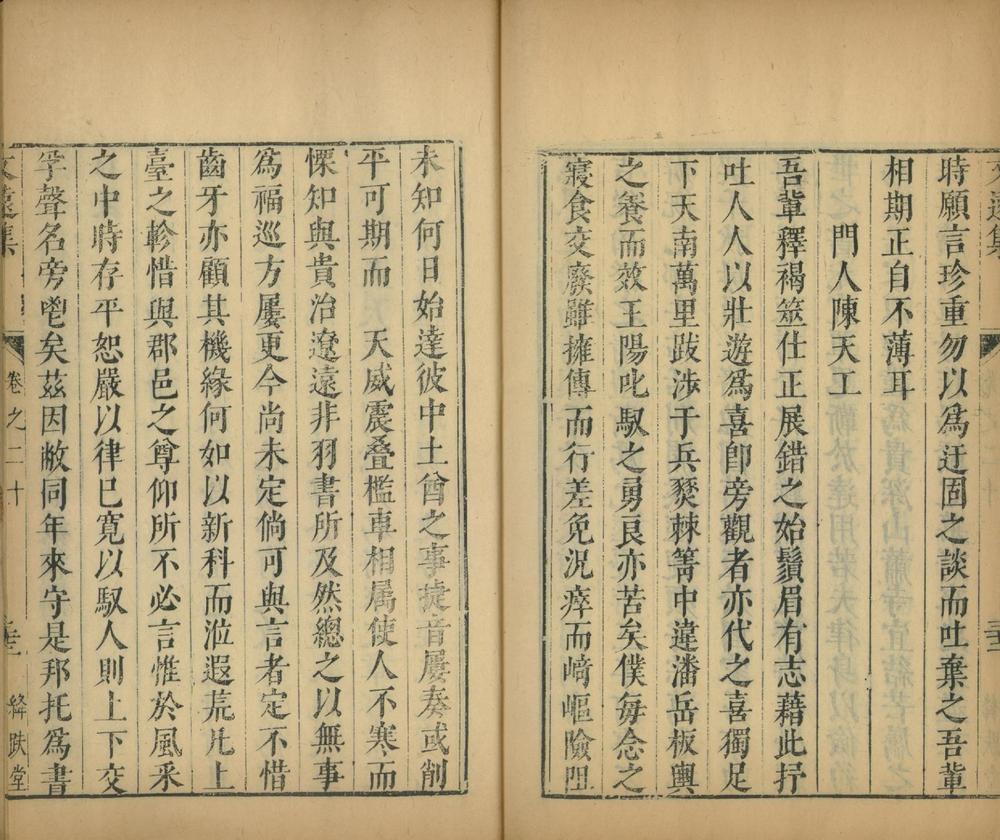 時願言珍重勿以為迂固之談而吐棄之吾輩
相期正自不薄耳
門人陳天工
吾輩釋褐筮仕正展錯之始鬚眉有志藉此抒
吐人人以壯遊為喜卽旁觀者亦代之喜獨足
下天南萬里跋涉于兵燹棘箐中違潘岳板輿
之養而效王陽叱馭之勇良亦苦矣僕每念之
寢食交廢雖擁傳而行差免況瘁而崎嶇險阻
未知何日始達彼中土酋之事捷音屢奏或削
平可期而 天威震疊檻車相属使人不寒而
慄知與貴治遼遠非羽書所及然總之以無事
為福巡方屢更今尚未定倘可與言者定不惜
齒牙亦顧其機緣何如以新科而涖遐荒凢上
臺之軫惜與郡邑之尊仰所不必言惟於風采
之中時存平恕嚴以律巳寛以馭人則上下交
孚聲名旁鬯矣茲因敝同年來守是邦托為書
卷之二十
絳趺堂